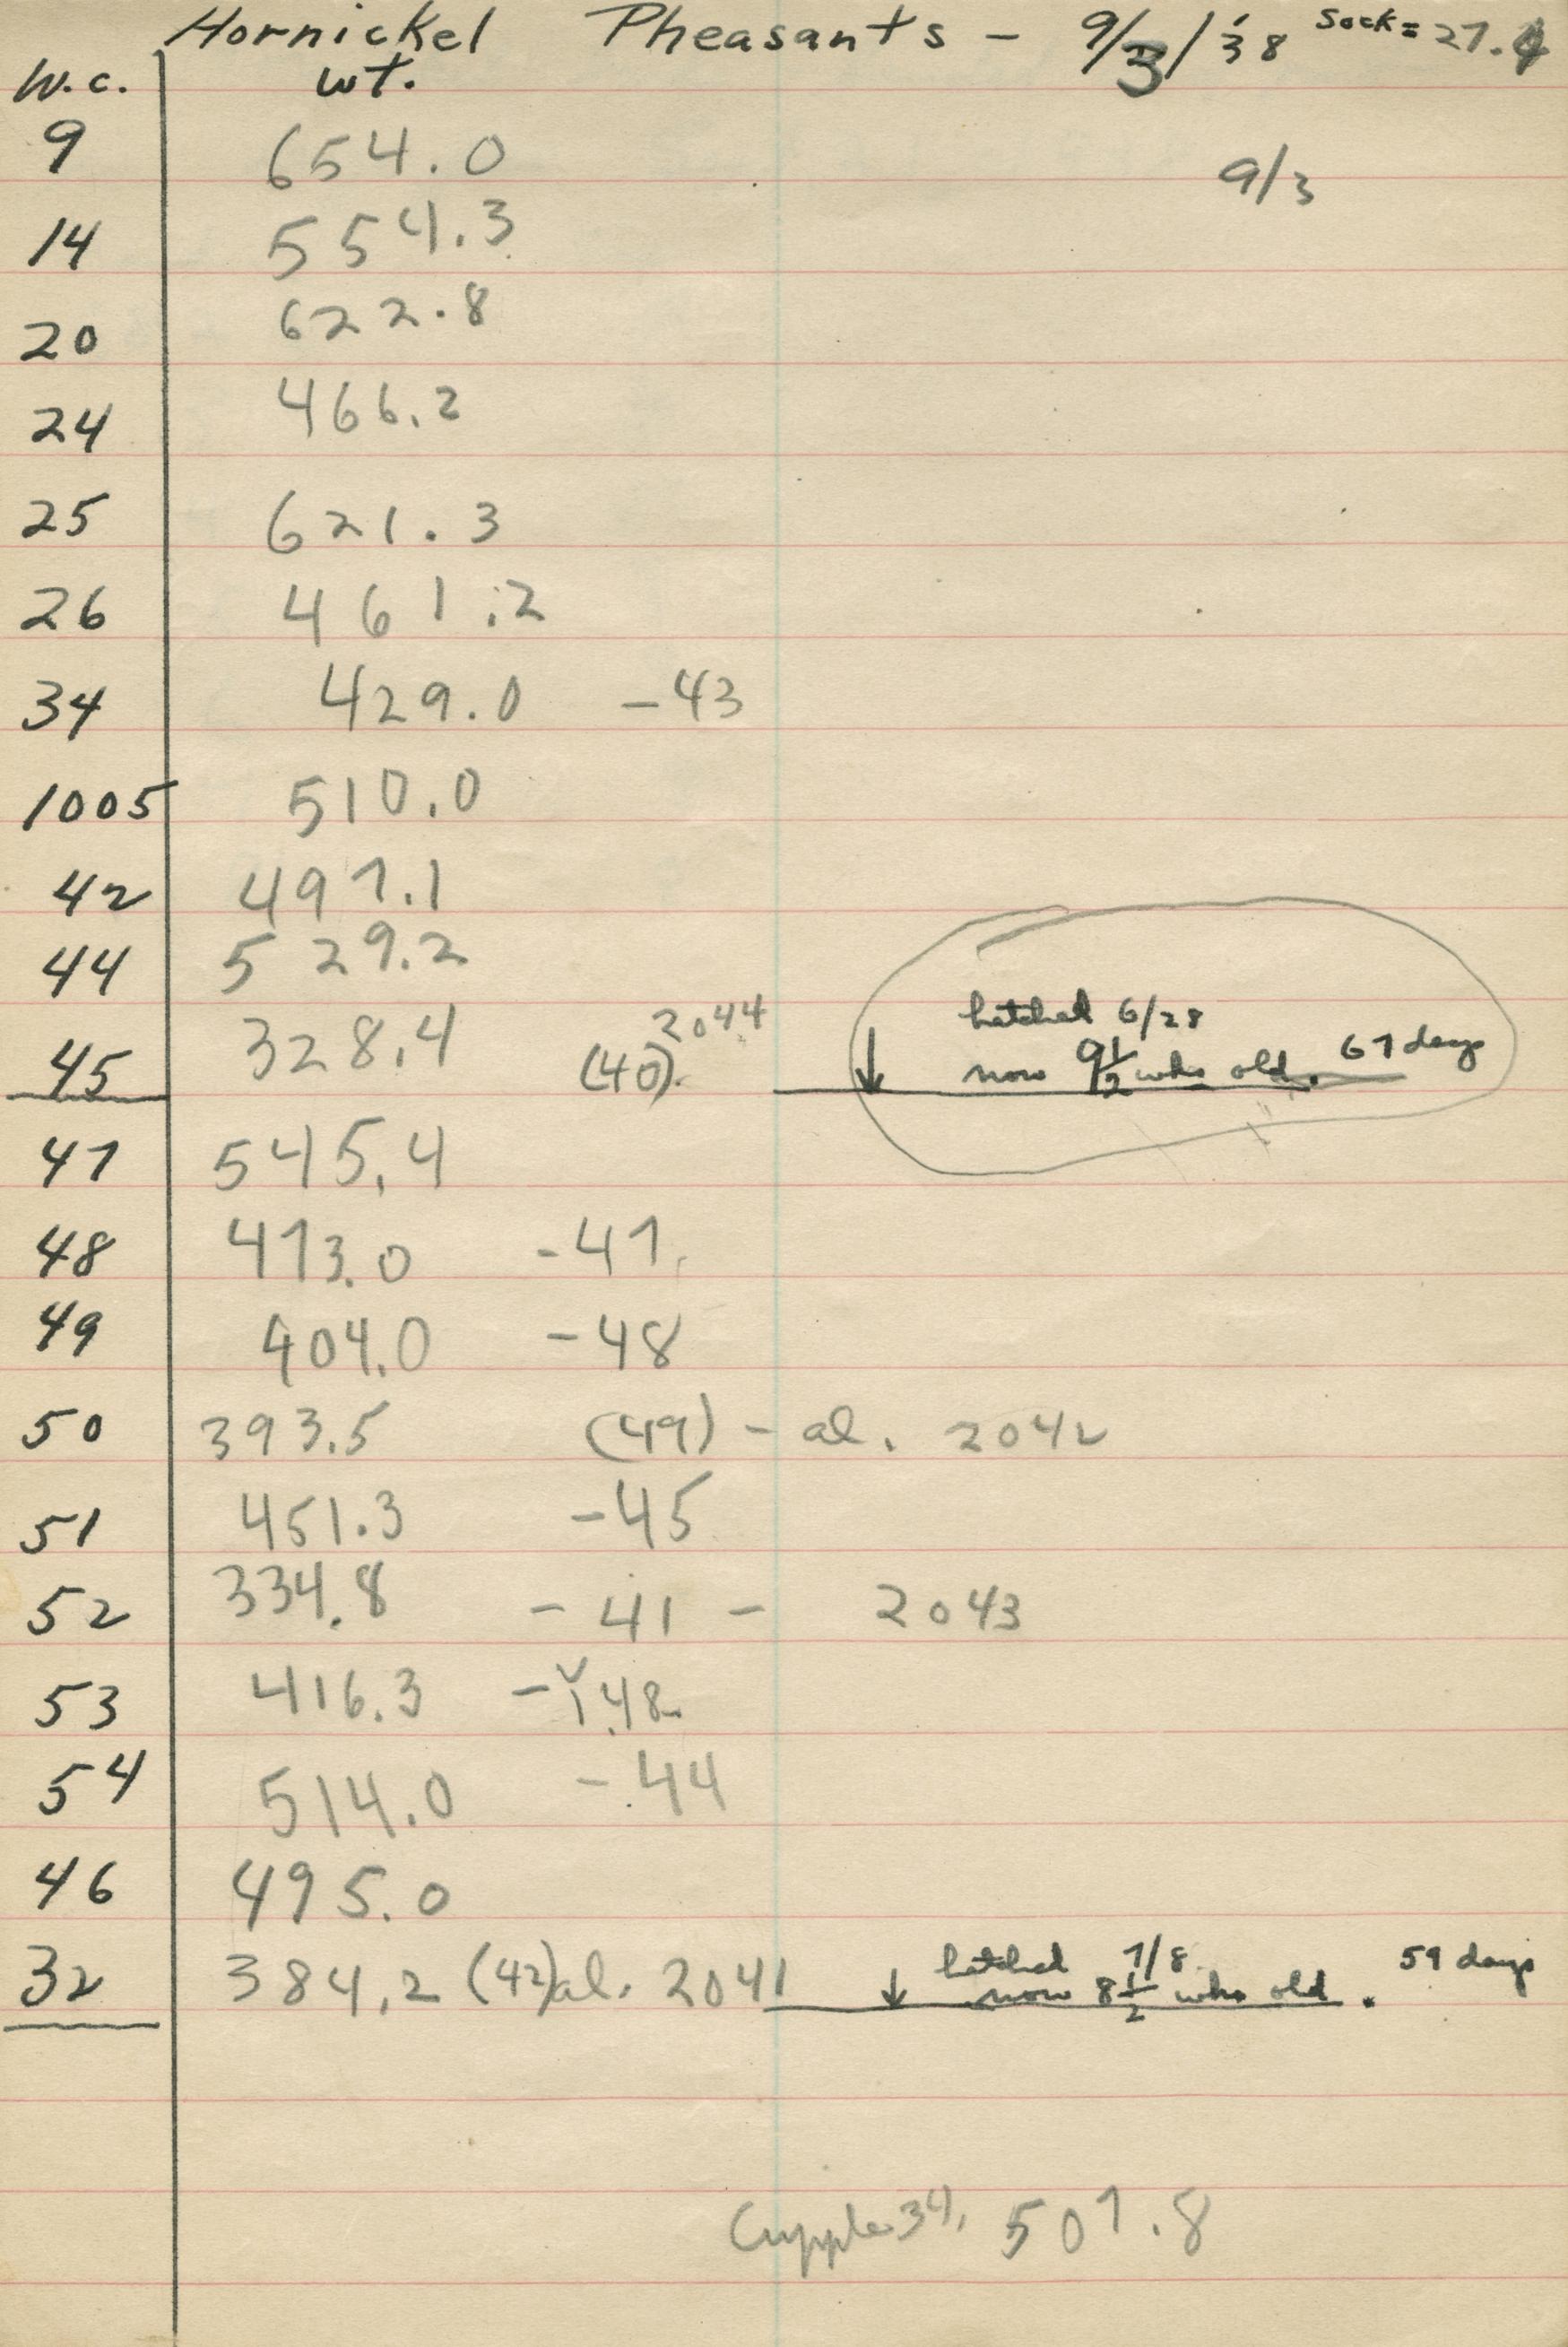 Hornickel Pheasants - 9/3/38 Sock = 27.4
W.c. wt.
9 654.0 9/3
14 554.3
20 622.8
24 466.2
25 621.3
26 461.2
34 429.0 -43
1005 510.0
42 497.1
44 529.2
2044 hatched 6/28
45 328.4 (40). ↓ now 9 1/2 wks old. 67 days
47 545.4
48 473.0 -47
49 404.0 -48
50 393.5 (49) - al. 2042
51 451.3 -45
52 334.8 - 41 - 2043
53 416.3 - 48
54 514.0 - 44
46 495.0
hatched 7/8 59 days
32 384.2 (42) al. 2041 ↓ now 8 1/2 wks old.
34, 507.8